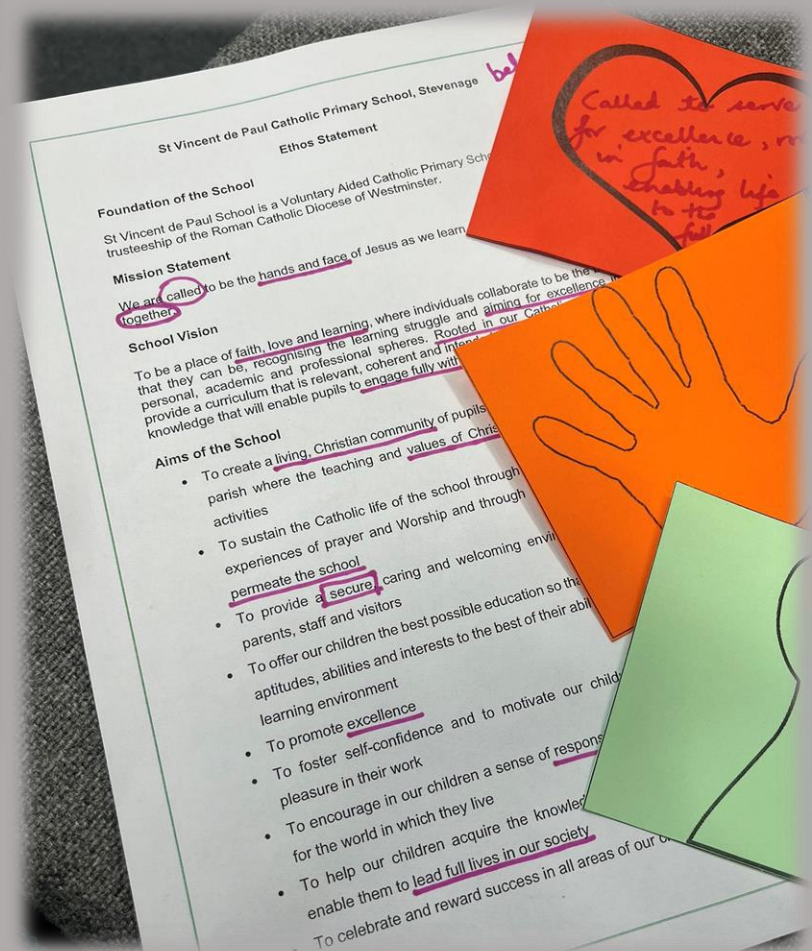 St Vincent de Paul Catholic Primary School, Stevenage
Ethos Statement
Foundation of the School
St Vincent de Paul School is a Voluntary Aided Catholic Primary
trusteeship of the Roman Catholic Diocese of Westminster.
Mission Statement
We are called to be the hands and face of Jesus as we learn
together.
School Vision
To be a place of faith, love and learning, where individuals collaborate to be the
that they can be, recognising the learning struggle and aiming for excellence
personal, academic and professional spheres. Rooted in our
provide a curriculum that is relevant, coherent and
knowledge that will enable pupils to engage fully with
Aims of the School
• To create a living, Christian community of pupils
parish where the teaching and values of
activities
• To sustain the Catholic life of the school through
experiences of prayer and Worship and through
permeate the school
• To provide a secure, caring and welcoming
parents, staff and visitors
• To offer our children the best possible education so
aptitudes, abilities and interests to the best of their
learning environment
• To promote excellence
• To foster self-confidence and to motivate our
pleasure in their work
• To encourage in our children a sense of
for the world in which they live
• To help our children acquire the
enable them to lead full lives in our society
To celebrate and reward success in all areas of our
Called to serve
for excellence,
in faith,
enabling life
to the
full